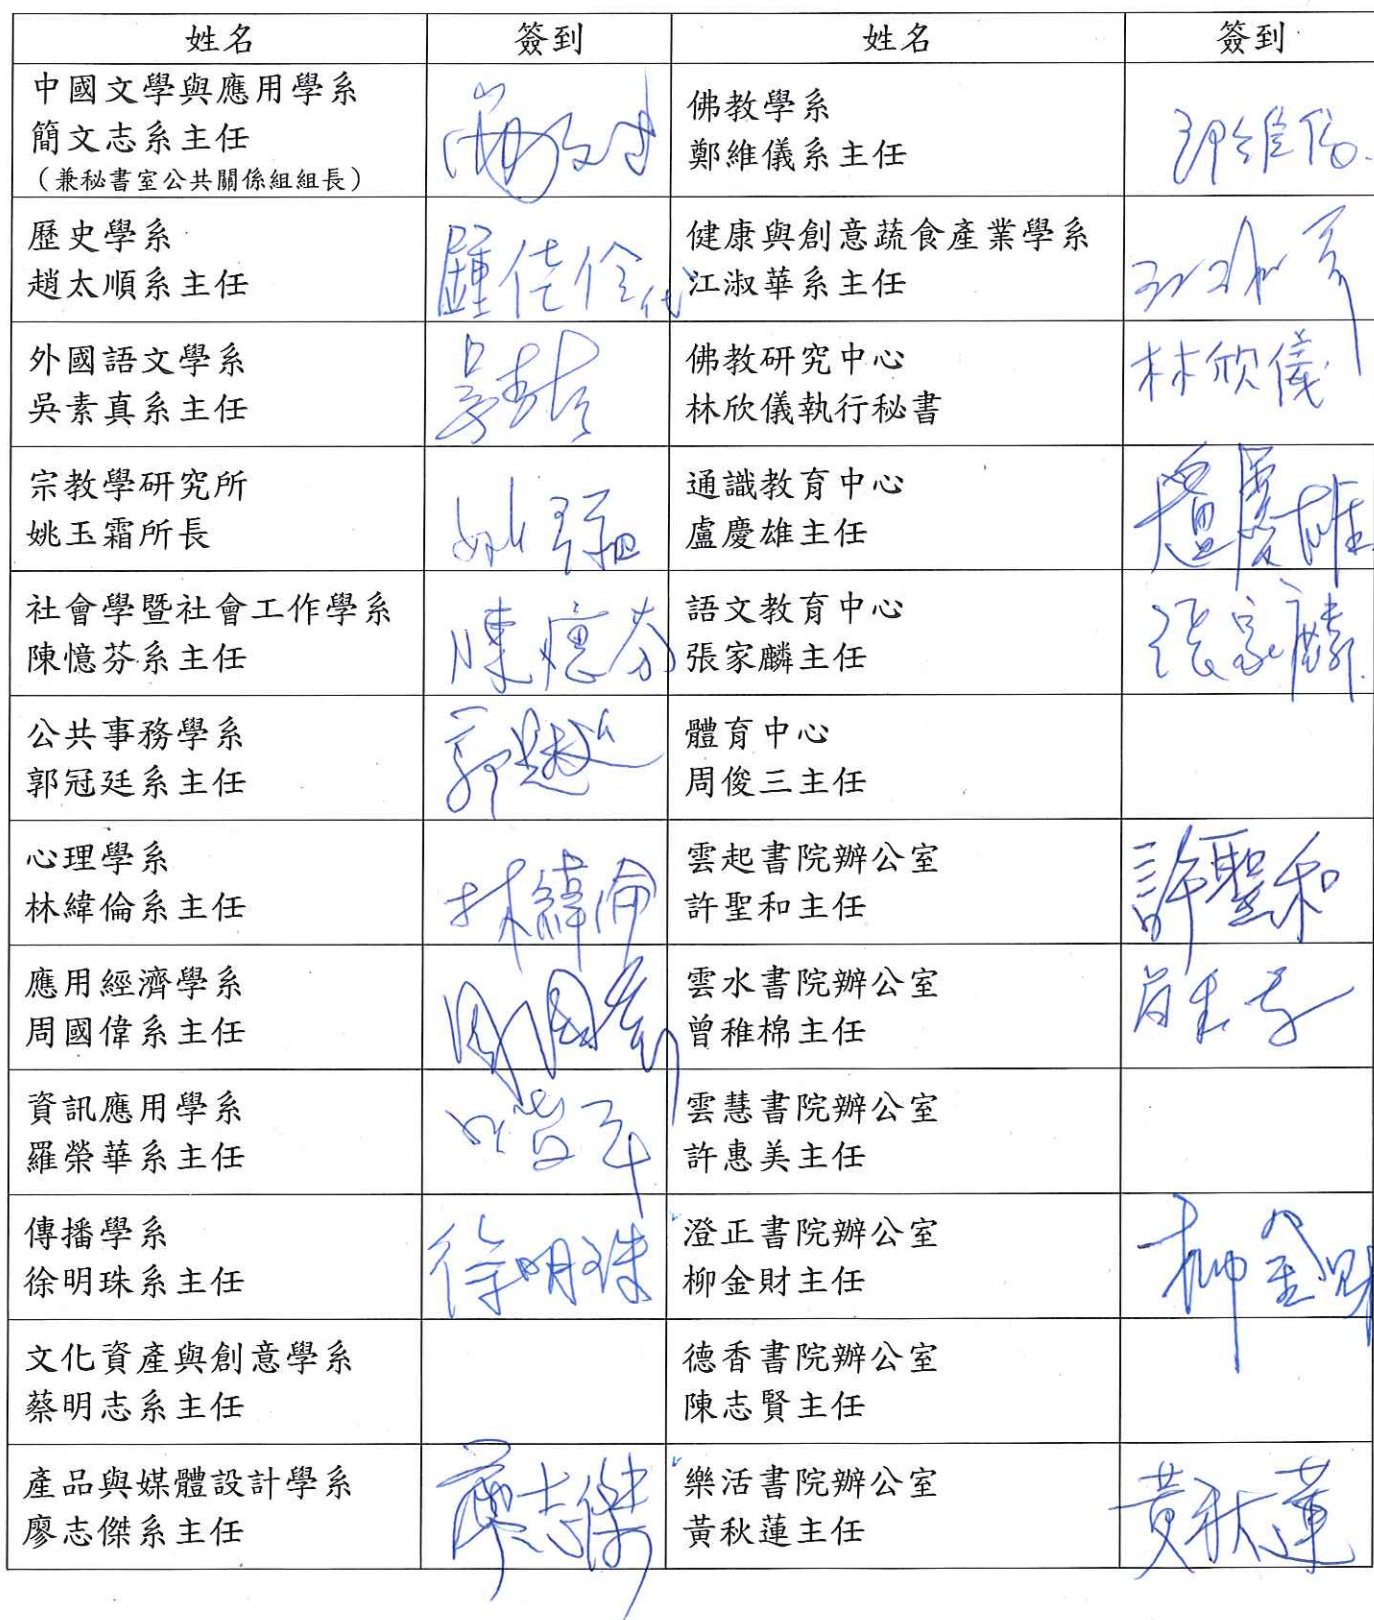 姓名 簽到 姓名 簽到
中國文學與應用學系
簡文志系主任
（兼秘書室公共關係組組長）
簡文志
佛教學系
鄭維儀系主任
鄭維儀
歷史學系
趙太順系主任
鍾佳伶代
健康與創意蔬食產業學系
江淑華系主任
外國語文學系
吳素真系主任
佛教研究中心
林欣儀執行秘書
林欣儀
宗教學研究所
姚玉霜所長
姚玉霜
通識教育中心
盧慶雄主任
盧慶雄
社會學暨社會工作學系
陳憶芬系主任
陳憶芬
語文教育中心
張家麟主任
張家麟
公共事務學系
郭冠廷系主任
體育中心
周俊三主任
心理學系
林緯倫系主任
林緯倫
雲起書院辦公室
許聖和主任
許聖和
應用經濟學系
周國偉系主任
周國偉
雲水書院辦公室
曾稚棉主任
資訊應用學系
羅榮華系主任
雲慧書院辦公室
許惠美主任
傳播學系
徐明珠系主任
徐明珠
澄正書院辦公室
柳金財主任
柳金財
文化資產與創意學系
蔡明志系主任
德香書院辦公室
陳志賢主任
產品與媒體設計學系
廖志傑系主任
廖志傑
樂活書院辦公室
黃秋蓮主任
黃秋蓮